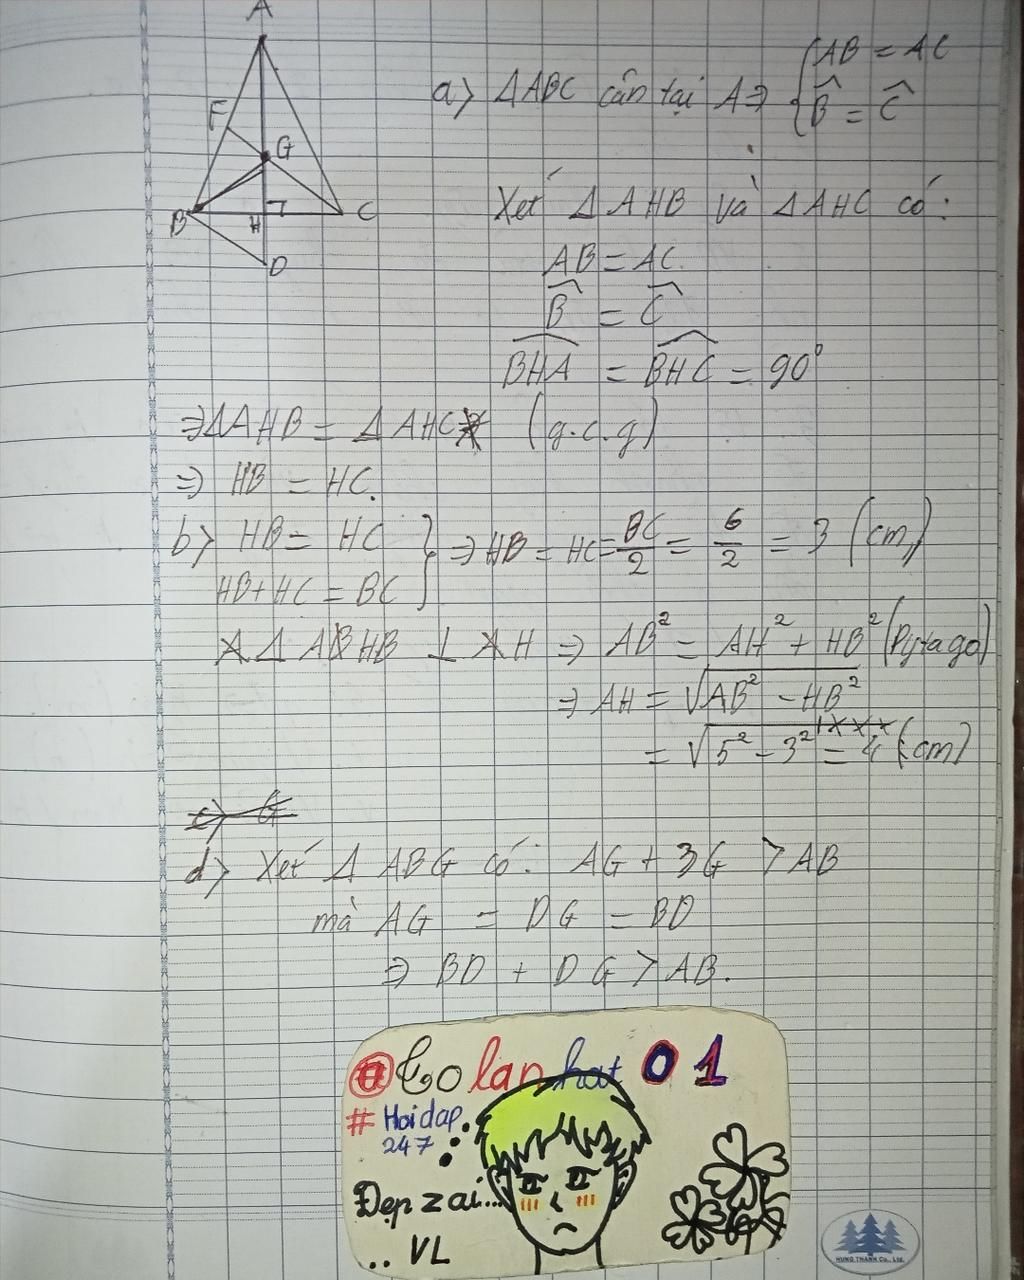 A
F
G
B
H
C
D
a) ΔABC cân tại A ⇒ { AB = AC
B̂ = Ĉ
Xét Δ AHB và Δ AHC có:
AB = AC.
B̂ = Ĉ
BHA = BHC = 90°
⇒ ΔAHB = ΔAHC (g.c.g)
⇒ HB = HC.
b) HB = HC
HB + HC = BC } ⇒ HB = HC = BC/2 = 6/2 = 3 (cm)
Δ AHB ⊥ H ⇒ AB² = AH² + HB² (Pytago)
⇒ AH = √AB² - HB²
= √5² - 3² = 4 (cm)
d) Xét Δ ABG có: AG + BG > AB
mà AG = DG = BD
⇒ BD + DG > AB.
Colanhat 01
# Hoidap
247
Đẹp zai...
.. VL
HUNG THANH Co., Ltd.